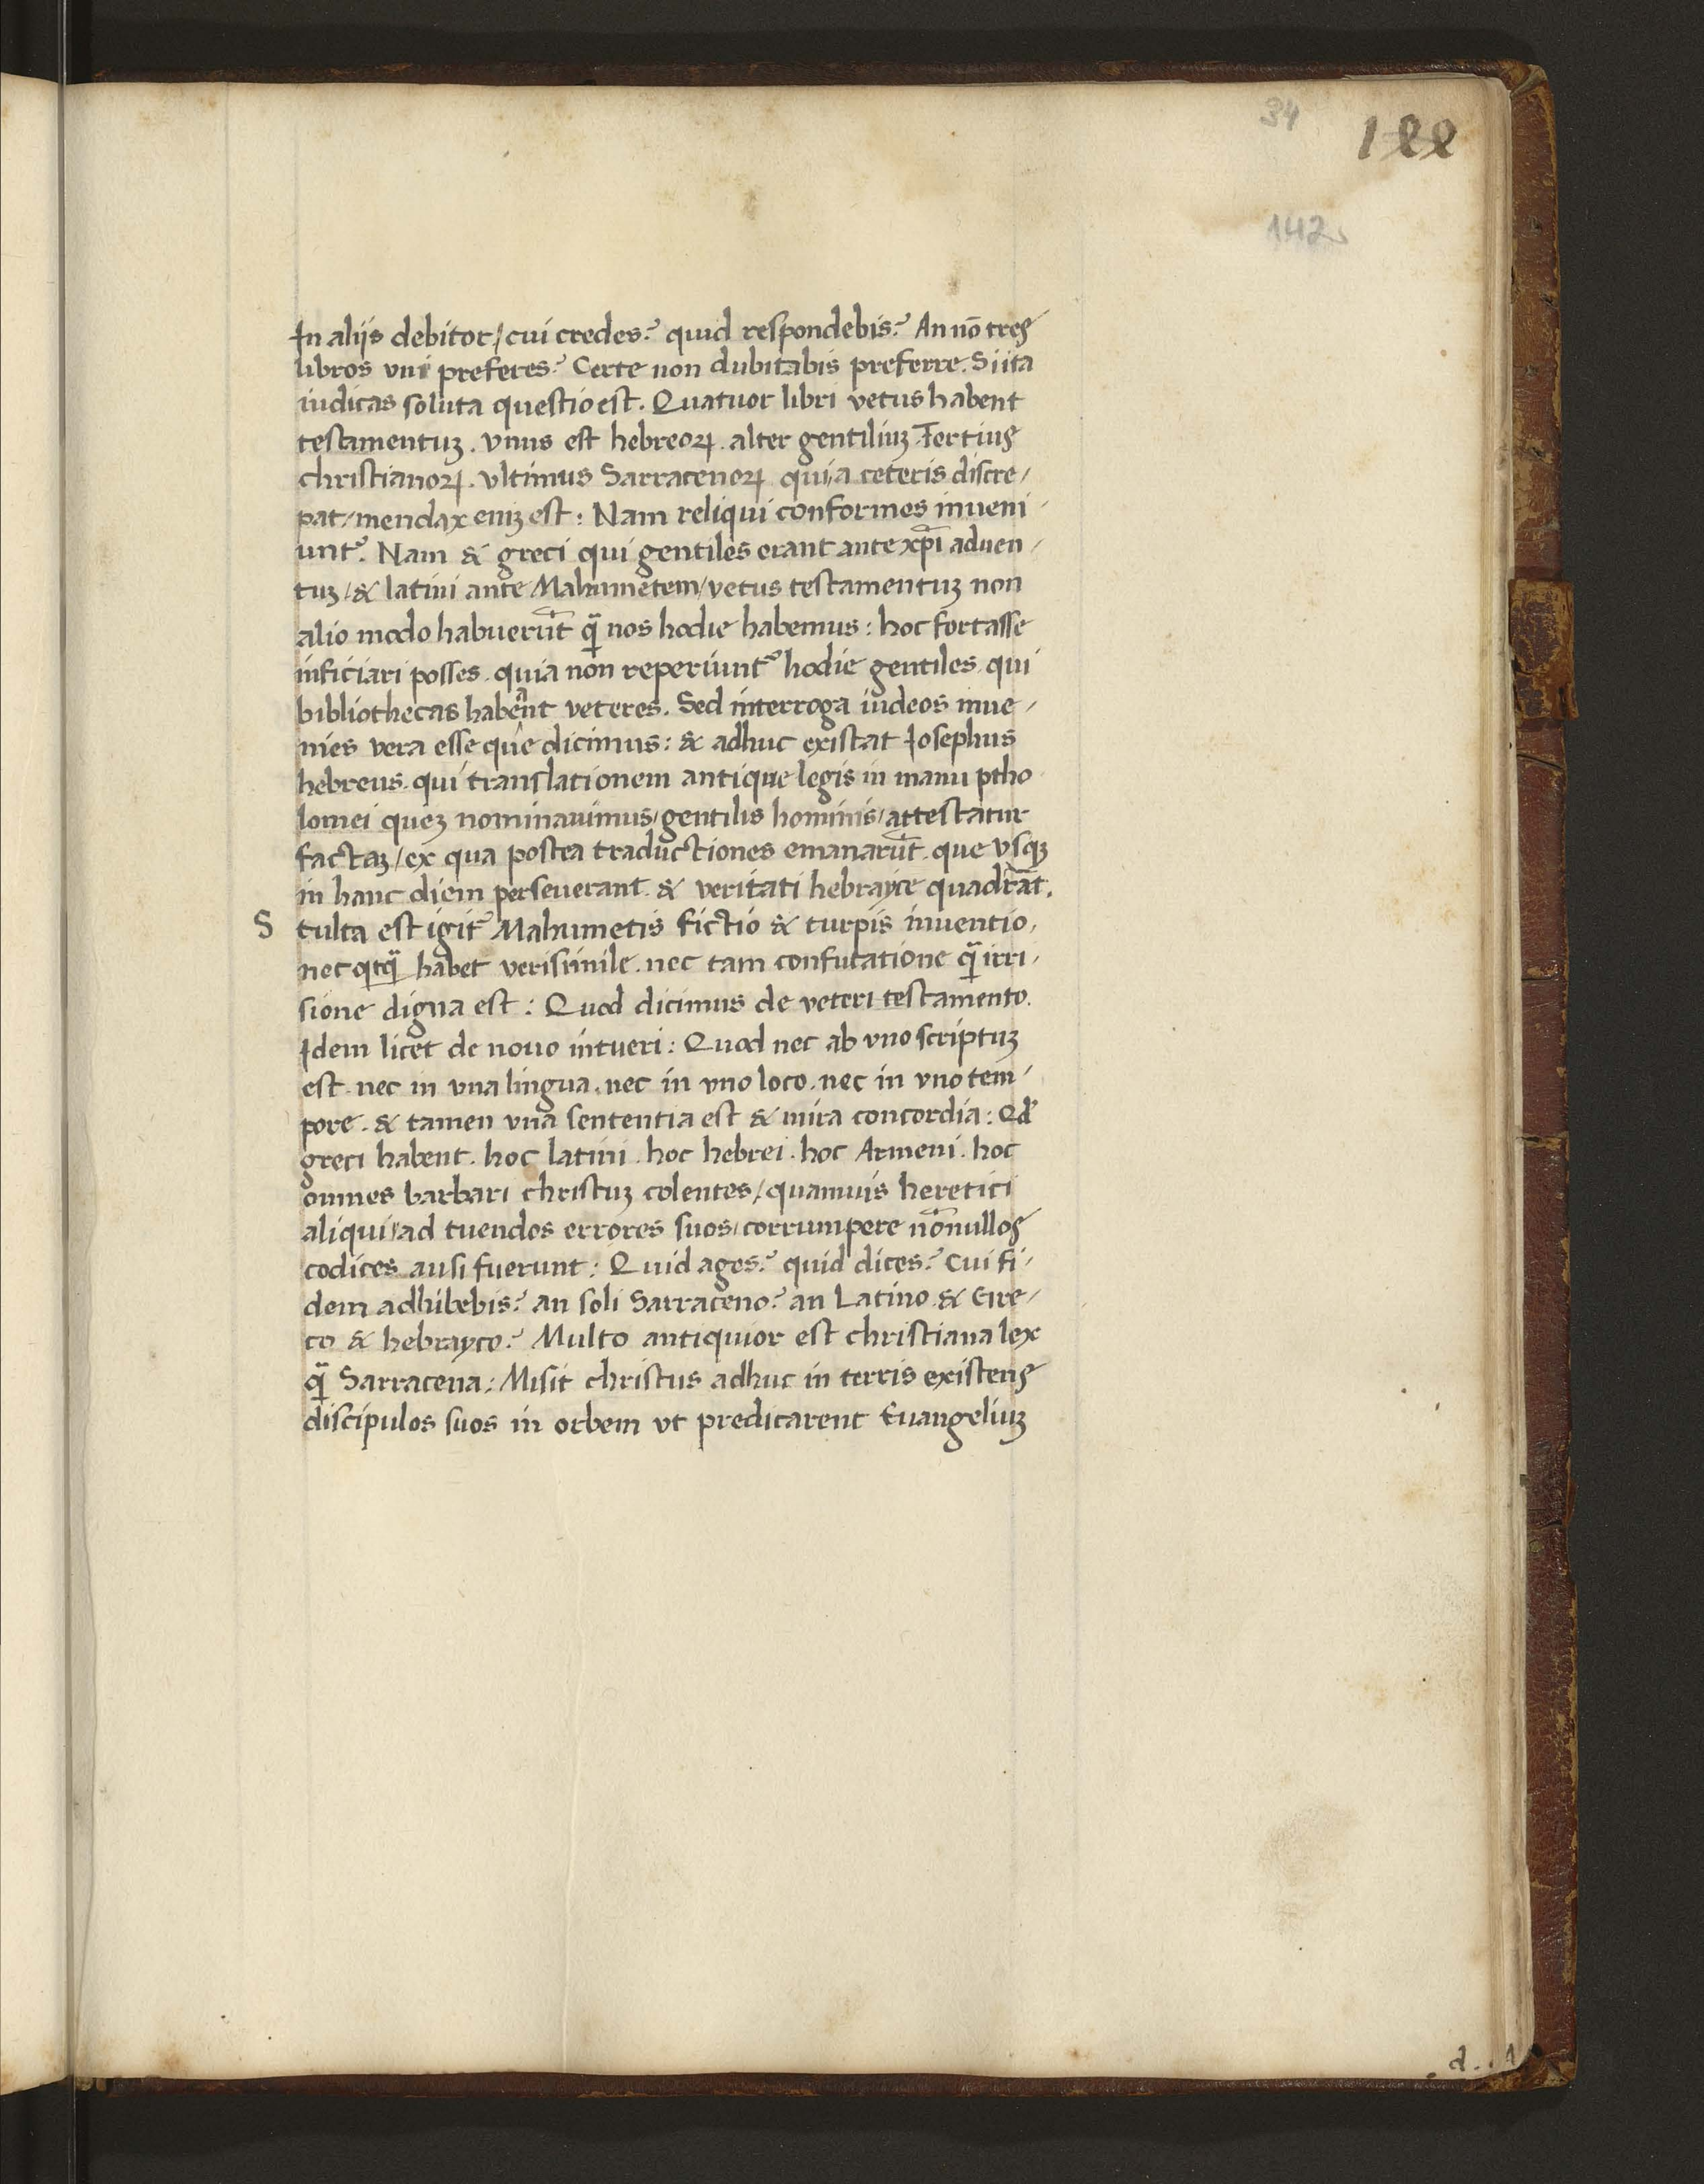 34
188
142
In aliis debitor / cui credes? quid respondebis? An nō tres
libros vni preferes? Certe non dubitabis preferre. Si ita
iudicas soluta questio est. Quatuor libri vetus habent
testamentuꝫ. vnus est hebreoꝝ. alter gentiliuꝫ. Tertius
christianoꝝ. vltimus Sarracenoꝝ qui / a ceteris discre /
pat / mendax eniꝫ est: Nam reliqui conformes inueni /
unt᷑. Nam & greci qui gentiles erant ante xp̄i aduen /
tuꝫ / & latini ante Mahumetem / vetus testamentuꝫ non
alio modo habuerūt ꝗ̄ nos hodie habemus: hoc fortasse
inficiari posses. quia non reperiunt᷑ hodie gentiles. qui
bibliothecas habeant veteres. Sed interroga iudeos inue /
nies vera esse que dicimus: & adhuc existat Iosephus
hebreus. qui translationem antique legis in manu ptho
lomei queꝫ nominauimus / gentilis hominis / attestatur
factaꝫ / ex qua postea traductiones emanarūt. que vsqꝫ
in hanc diem perseuerant. & veritati hebrayce quadrāt.
S tulta est igit᷑ Mahumetis fictio & turpis inuentio,
nec qͥcꝗ̄ habet verisimile. nec tam confutatione ꝗ̄ irri /
sione digna est: Quod dicimus de veteri testamento.
Idem licet de nouo intueri: Quod nec ab vno scriptuꝫ
est. nec in vna lingua. nec in vno loco. nec in vno tem /
pore. & tamen vna sententia est & mira concordia: Qd̛
greci habent. hoc latini. hoc hebrei. hoc Armeni. hoc
omnes barbari christuꝫ colentes / quamuis heretici
aliqui / ad tuendos errores suos / corrumpere nōnullos
codices ausi fuerunt: Quid ages? quid dices? Cui fi /
dem adhibebis? an soli Sarraceno? an Latino & Gre /
co & hebrayco? Multo antiquior est christiana lex
ꝗ̄ Sarracena: Misit christus adhuc in terris existens
discipulos suos in orbem vt predicarent Euangeliuꝫ
d. . 1